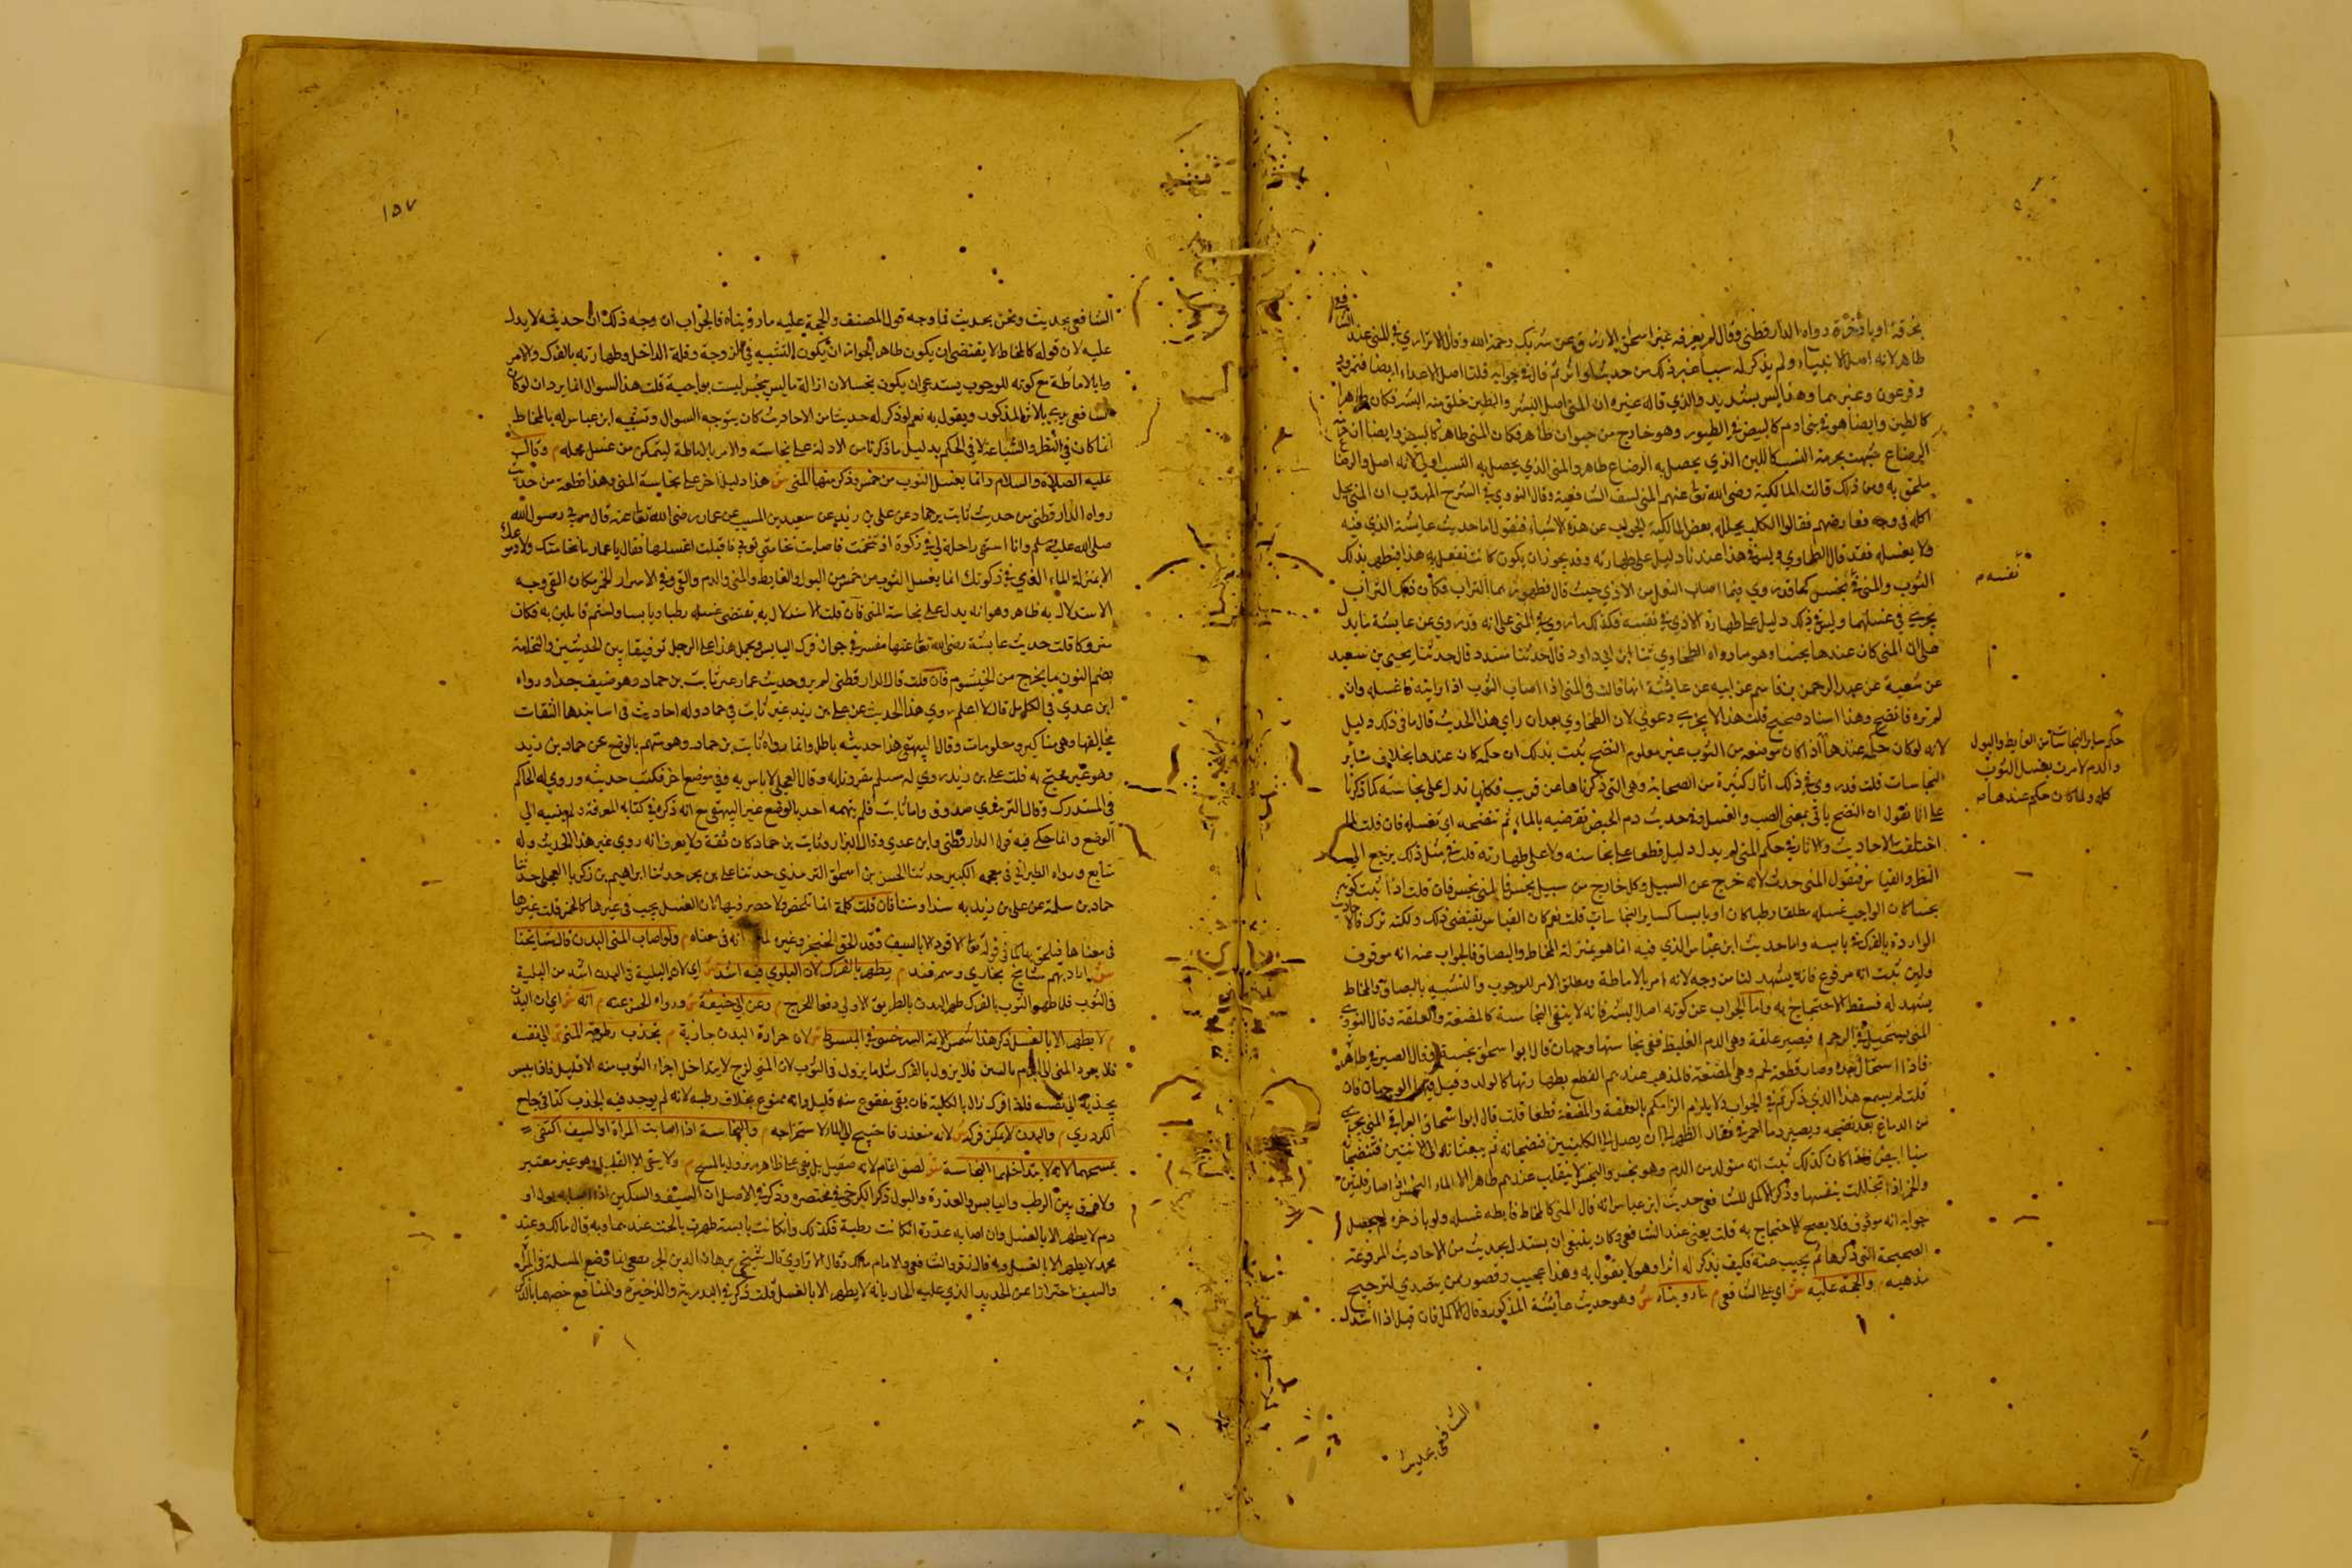 بخرقة او باذخرة رواه الدارقطني وقال لم يرفعه غير اسحق الازرق عن شريك رحمة الله وقال الاترازي في المني عند الشافعي
طاهر لانه اصل الانبياء ولم يذكر له سببا غير ذلك من حديث او اثر ثم قال في جوابه قلنا اصل الاعداء ايضا فنمرود
وفرعون وغيرهما وهذا ليس بسديد والذي قاله غيره ان المني اصل البشر والطين خلق منه البشر فكان طاهرا
كالطين وايضا هو في بني ادم كالبيض في الطيور وهو خارج من حيوان طاهر فكان المني طاهر كالبيض وايضا ان حرمة
الرضاع شبهت بحرمة النسب كاللبن الذي يحصل به الرضاع طاهر والمني الذي يحصل به النسب اولى لانه اصل والرضاع
ملحق به ومن ذلك قالت المالكية رضي الله تعالى عنهم المني لسف الشافعية وقال النووي في الشرح المهذب ان المني يحل
اكله في وجه فعارضهم فقالوا الكلب يحل له بعض المالكية الجواب عن هذه الاشياء فنقول اما حديث عايشة الذي فيه
ولا يغسله فقد قال الطحاوي وليس في هذا عندنا دليل على طهارته وقد يجوز ان يكون كانت تفعل به هذا فيطهر بذلك
الثوب والمني في نجس كما قد روي فيما اصاب النعل من الاذي حيث قال فطهورهما التراب فكان ذلك التراب
يجزي في غسلهما وليس في ذلك دليل على طهارة الاذي في نفسه فكذلك ما روي في المني على انه قد روي عن عايشة ما يدل
على ان المني كان عندها نجسا وهو ما رواه الطحاوي ثنا ابن ابي داود قال حدثنا مسدد قال حدثنا يحيى بن سعيد
عن شعبة عن عبد الرحمن بن قاسم عن ابيه عن عائشة انها قالت في المني اذا اصاب الثوب اذا رايته فاغسله وان
لم تره فانضح وهذا اسناد صحيح قلت هذا لا يجزي دعوي لان الطحاوي بعد ان راي هذا الحديث قال ما في ذلك دليل
لانه لو كان حكمه عندها اذا كان موضعه من الثوب غير معلوم النضح ثبت بذلك ان حكمه كان عندها بخلاف سائر
النجاسات قلت قد روي في ذلك اثار كثيرة من الصحابة وهي التي ذكرناها عن قريب فكلها تدل على نجاسته كما ذكرنا
على انا نقول ان النضح ياتي بمعنى الصب والغسل وفي حديث دم الحيض تقرضيه بالماء ثم تنضحه اي تغسله فان قلت لما
اختلفت الاحاديث والاثار في حكم المني لم يدل دليل قطعا على نجاسته ولا على طهارته قلت في مثل ذلك يرجع الى
النظر والقياس فنقول المني حدث لانه خرج عن السبيل وكل خارج من سبيل نجس فالمني نجس فان قلت اذا ثبت كونه
نجسا كان الواجب غسله مطلقا رطبا كان او يابسا كساير النجاسات قلت نعم كان القياس يقتضي ذلك ولكنه ترك بالاحاديث
الواردة بالفرك في يابسه واما حديث ابن عباس الذي فيه انما هو بمنزلة المخاط والبصاق فالجواب عنه انه موقوف
ولين ثبت انه مرفوع فانه يشهد لنا من وجه لانه امر بالاماطة ومطلق الامر للوجوب والتشبيه بالبصاق والمخاط
يشهد له فسقط الاحتجاج به واما الجواب عن كونه اصل البشر فانه لا ينفي النجاسة كالمضغة والعلقة وقال النووي
المني يستحيل في الرحم فيصير علقة وهي الدم الغليظ ففي نجاستها وجهان قال ابو اسحاق نجسة وقال الصيرفي طاهر
فاذا استحال بعده وصار قطعة لحم وهي المضغة فالمذهب عندهم القطع بطهارتها كالولد وقيل فيها الوجهان فان
قلت لم يسمع هذا الذي ذكرتم في الجواب ولا يلزم الزامكم بالعلقة والمضغة قطعا قلت قال ابو اسحاق العراقي المني يخرج
من الدماغ بعد نضجه ويصير دما احمر في فقار الظهر الى ان يصل الى الكليتين فنضجانه ثم يبعثانه الى الانثيين فتنضجانه
منيا ابيض فاذا كان كذلك ثبت انه متولد من الدم وهو نجس والنجس لا ينقلب عندهم طاهرا الا الماء النجس اذا صار قلتين
والخمر اذا تخللت بنفسها وذكر الاكمل للشافعي حديث ابن عباس انه قال المني كالمخاط فامطه عنك ولو باذخره ثم جعل
جوابه انه موقوف فلا يصح الاحتجاج به قلت يعني عند الشافعي وكان ينبغي ان يستدل بحديث من الاحاديث المرفوعة
الصحيحة التي ذكرها ثم يجيب عنه فكيف يذكر له اثرا وهو لا يقول به وهذا عجيب وقصور ممن يتصدي لترجيح
مذهبه م والحجة عليه ش اي على الشافعي م ما رويناه ش وهو حديث عايشة المذكور وقال الاكمل فان قيل اذا استدل
نفسه م
حكم ساير النجاسات من الغايط والبول
والدم لامرت بغسل الثوب
كله ولما كان حكمه عندها م
الشافعي بحديث
١٥٧
الشافعي بحديث ونحن بحديث فما وجه قول المصنف والحجة عليه ما رويناه فالجواب ان وجه ذلك ان حديثه لا يدل
عليه لان قوله كالمخاط لا يقتضي ان يكون طاهرا لجواز ان يكون التشبيه في اللزوجة وقلة التداخل وطهارته بالفرك والامر
بالاماطة مع كونه للوجوب يستدعي ان يكون نجسا لان ازالة ما ليس بنجس ليست بواجبة قلت هذا السوال انما يرد ان لو كان
الشافعي يحتج بالاثر المذكور ويقول به نعم لو ذكر له حديثا من الاحاديث كان يتوجه السوال وتشبيه ابن عباس له بالمخاط
انما كان في النظر والشباعة لا في الحكم بدليل ما ذكرنا من الادلة على نجاسته والامر بالاماطة ليتمكن من غسل محله م وقال
عليه الصلاة والسلام وانما يغسل الثوب من خمس وذكر منها المني ش هذا دليل اخر على نجاسة المني وهذا قطعة من حديث
رواه الدارقطني من حديث ثابت بن حماد عن علي بن زيد عن سعيد بن المسيب عن عمار رضي الله تعالى عنه قال مر بي رسول الله
صلى الله عليه وسلم وانا استقي راحلة لي في ركوة اذ تنخمت فاصابت نخامتي ثوبي فاقبلت اغسلها فقال يا عمار ما نخامتك ولا دموعك
الا بمنزلة الماء الذي في ركوتك انما يغسل الثوب من خمس من البول والغايط والمني والدم والقي وفي الاسرار الخمر مكان القي وجه
الاستدلال به ظاهر وهو انه يدل على نجاسة المني فان قلت الاستدلال به يقتضي غسله رطبا ويابسا ولستم قايلين به فكان
متروكا قلت حديث عايشة رضي الله تعالى عنها مفسر في جواز فرك اليابس ويحمل هذا على الرجل توفيقا بين الحديثين والنخامة
بضم النون ما يخرج من الخيشوم فان قلت قال الدارقطني لم يرو حديث عمار غير ثابت بن حماد وهو ضعيف جدا ورواه
ابن عدي في الكامل قال لا اعلم روي هذا الحديث عن علي بن زيد غير ثابت بن حماد وله احاديث في اسانيدها الثقات
يخالفها وهي مناكير ومعلومات وقال البيهقي هذا حديثه باطل وانما رواه ثابت بن حماد وهو متهم بالوضع عن حماد بن زيد
وهو غير محتج به قلت علي بن زيد روي له مسلم مقرونا به وقال العجلي لا باس به وفي موضع اخر يكتب حديثه وروي له الحاكم
في المستدرك وقال الترمذي صدوق واما ثابت فلم يتهمه احد بالوضع غير البيهقي مع انه ذكره في كتابه المعرفة ولم ينسبه الى
الوضع وانما حكي فيه قول الدارقطني وابن عدي وقال البزار وثابت بن حماد كان ثقة ولا يعرف انه روي غير هذا الحديث وله
متابع ورواه الطبراني في معجمه الكبير حدثنا الحسن بن اسحق التستري حدثنا علي بن بحر حدثنا ابراهيم بن زكريا العجلي حدثنا
حماد بن سلمة عن علي بن زيد به سندا ومتنا فان قلت كلمة انما للحصر ولا حصر فيها لان الغسل يجب في غيرها كالخمر قلت غيرها
في معناها فيلحق بها كما في قوله عليه السلام لا قود الا بالسيف فقد الحق الخنجر وغيره انه في معناه م ولو اصاب المني البدن قال مشايخنا
ش اراد بهم مشايخ بخاري وسمرقند م يطهر بالفرك لان البلوي فيه اشد ش اي لان البلية في البدن اشد من البلية
في الثوب فلما طهر الثوب بالفرك طهر البدن بالطريق الاولي دفعا للحرج م وعن ابي حنيفة ش ورواه الحسن عنه م انه ش اي ان البدن
م لا يطهر الا بالغسل ذكر هذا شمس الايمة السرخسي في المبسوط ش لان حرارة البدن جاذبة م تجذب رطوبة المني الى نفسه
فلا يعود المني الى الجرم فلا يزول بالفرك مثلما يزول في الثوب لان المني لزج لا يتداخل اجزاء الثوب منه الا قليل فاذا يبس
يجذبه الى نفسه فاذا فرك زال بالكلية فان بقي معفو عنه قليل وانه ممنوع بخلاف رطبه لانه لم يوجد فيه الجذب كذا في جامع
الكردري م والبدن لا يمكن فركه ش لانه متعذر فاحتيج الى الماء لاستخراجه م والنجاسة اذا اصابت المراة او السيف اكتفي
بمسحهما لانه لا يتداخلهما النجاسة ش لصقالتهما لانه صقيل بل يبقي على ظاهره فيزول بالمسح م ولا يبقي الا القليل وهو غير معتبر
ولا فرق بين الرطب واليابس والعذرة والبول ذكر الكرخي في مختصره وذكر في الاصل ان السيف والسكين اذا اصابه بول او
دم لا يطهر الا بالغسل وان اصابه عذرة ان كانت رطبة فكذلك وان كانت يابسة طهرت بالحت عندهما وبه قال مالك وعند
محمد لا يطهر الا بالغسل وبه قال زفر والشافعي والامام مالك وقال الاترازي قال شيخي برهان الدين الخريفغني انما وضع المسالة في المراة
والسيف احترازا عن الحديد الذي عليه الغبار بانه لا يطهر الا بالغسل قلت ذكر في البدرية والذخيرة والمنافع خصهما بالذكر